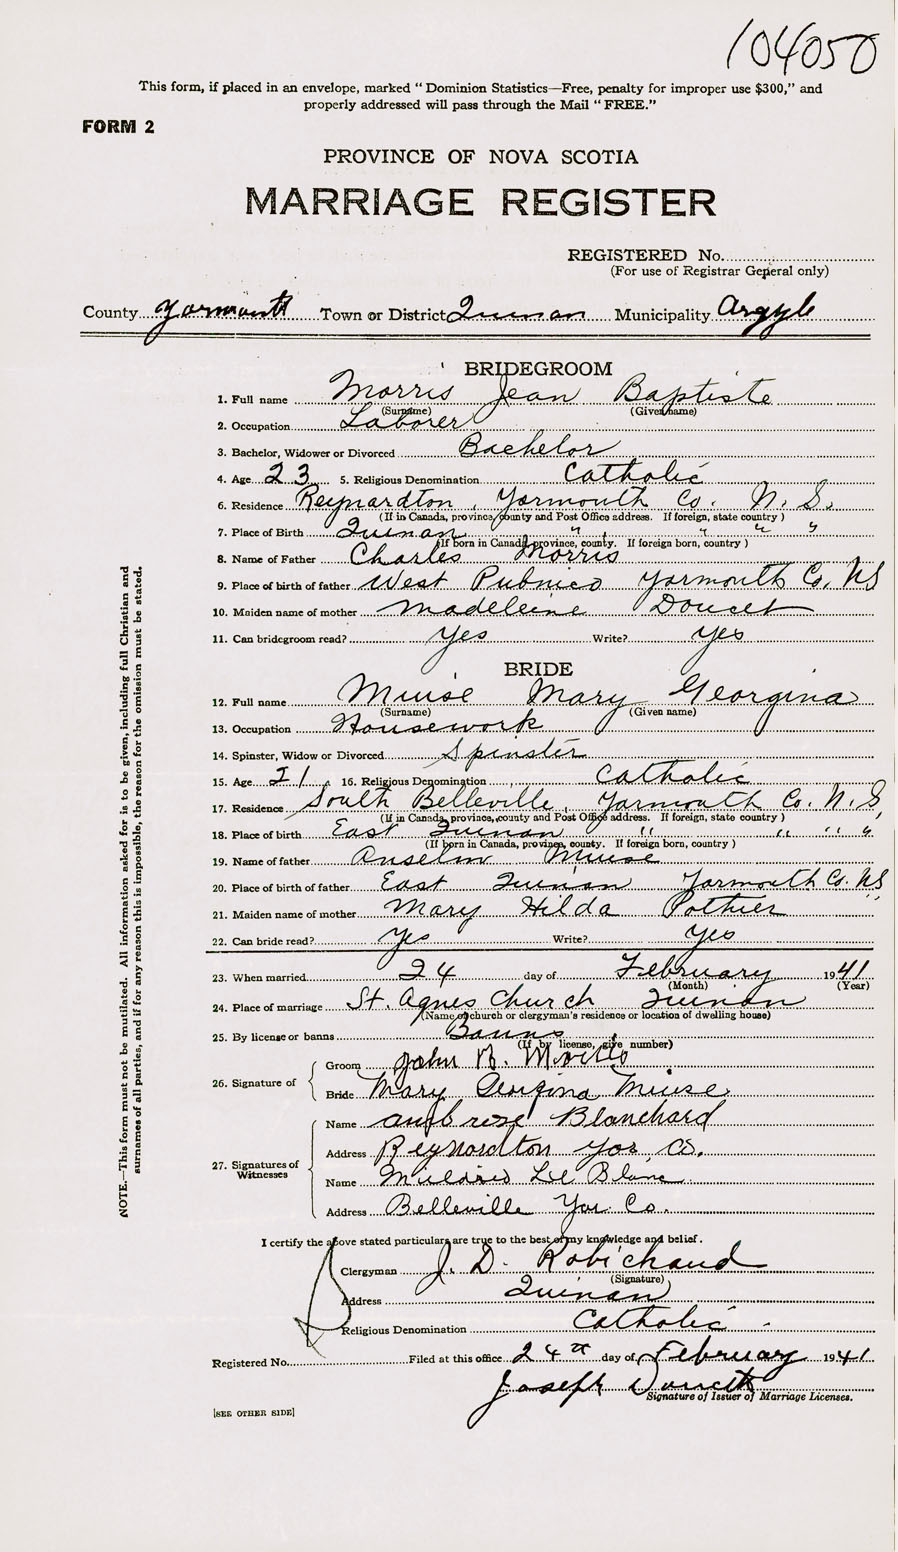 104050
This form, if placed in an envelope, marked “Dominion Statistics—Free, penalty for improper use $300,” and
properly addressed will pass through the Mail “FREE.”
FORM 2
PROVINCE OF NOVA SCOTIA
MARRIAGE REGISTER
REGISTERED No.
(For use of Registrar General only)
County Yarmouth Town or District Quinan Municipality Argyle
BRIDEGROOM
1. Full name Morris Jean Baptiste
(Surname) (Given name)
2. Occupation Laborer
3. Bachelor, Widower or Divorced Bachelor
4. Age 23 5. Religious Denomination Catholic
6. Residence Reynardton, Yarmouth Co. N. S.
(If in Canada, province, county and Post Office address. If foreign, state country)
7. Place of Birth Quinan " " " "
(If born in Canada, province, county. If foreign born, country)
8. Name of Father Charles Morris
9. Place of birth of father West Pubnico Yarmouth Co. NS
10. Maiden name of mother Madeleine Doucet
11. Can bridegroom read? Yes Write? Yes
BRIDE
12. Full name Muise Mary Georgina
(Surname) (Given name)
13. Occupation Housework
14. Spinster, Widow or Divorced Spinster
15. Age 21 16. Religious Denomination Catholic
17. Residence South Belleville, Yarmouth Co. N. S,
(If in Canada, province, county and Post Office address. If foreign, state country)
18. Place of birth East Quinan " " " "
(If born in Canada, province, county. If foreign born, country)
19. Name of father Anselm Muise
20. Place of birth of father East Quinan Yarmouth Co. NS
21. Maiden name of mother Mary Hilda Pothier "
22. Can bride read? Yes Write? Yes
23. When married 24 day of February 1941
(Month) (Year)
24. Place of marriage St. Agnes Church Quinan
(Name of church or clergyman's residence or location of dwelling house)
25. By license or banns Banns
(If by license, give number)
26. Signature of
Groom John B. Morris
Bride Mary Georgina Muise
27. Signatures of Witnesses
Name Ambrose Blanchard
Address Reynardton Yar Co.
Name Mildred Le Blanc
Address Belleville Yar. Co.
I certify the above stated particulars are true to the best of my knowledge and belief.
Clergyman J. D. Robichaud
(Signature)
Address Quinan
Religious Denomination Catholic
Registered No. Filed at this office 24th day of February 1941
Joseph Doucette
Signature of Issuer of Marriage Licenses.
[SEE OTHER SIDE]
NOTE.—This form must not be mutilated. All information asked for is to be given, including full Christian and
surnames of all parties, and if for any reason this is impossible, the reason for the omission must be stated.